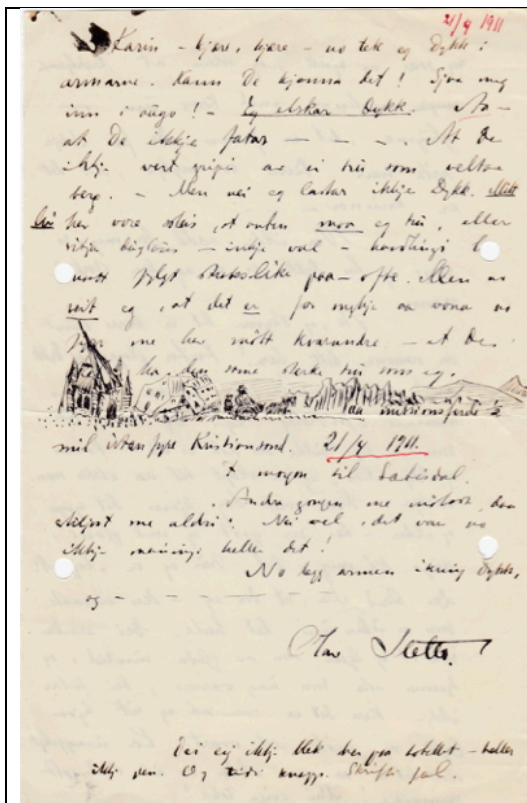 21/9 1911
Karin – kjære, kjære – no tek eg Dykk i
armarne. Kann De kjenna det! Sjaa meg
inn i augo! – Eg elskar Dykk. Aa –
at De ikkje fatar – – – . At De
ikkje vert gripi av ei tru som velta
berg. – Men nei eg lastar ikkje Dykk. Mitt
liv her vore solvis, at anten maa eg tru, eller
– inkje val – handlingi
paa – ofte. Men no
veit eg, at det er for mykje aa vona no
fyrr me her møtt kvarandre – at De
ha den same sterke tru som eg.
paa missionsferd 2
mil Kristiansand. 21/9 1911.
I morgon til Sætisdal.
Andre gongen me møtest, daa
skiljest me aldri! Nei vel, det var no
ikkje meiningi heller det!
No legg armen ikring Dykk,
og – – – –
Olav Sletto.
Fær eg ikkje blek her paa hotellet – heller
ikkje pen. Og tidi knapp. Skrifti fæl.